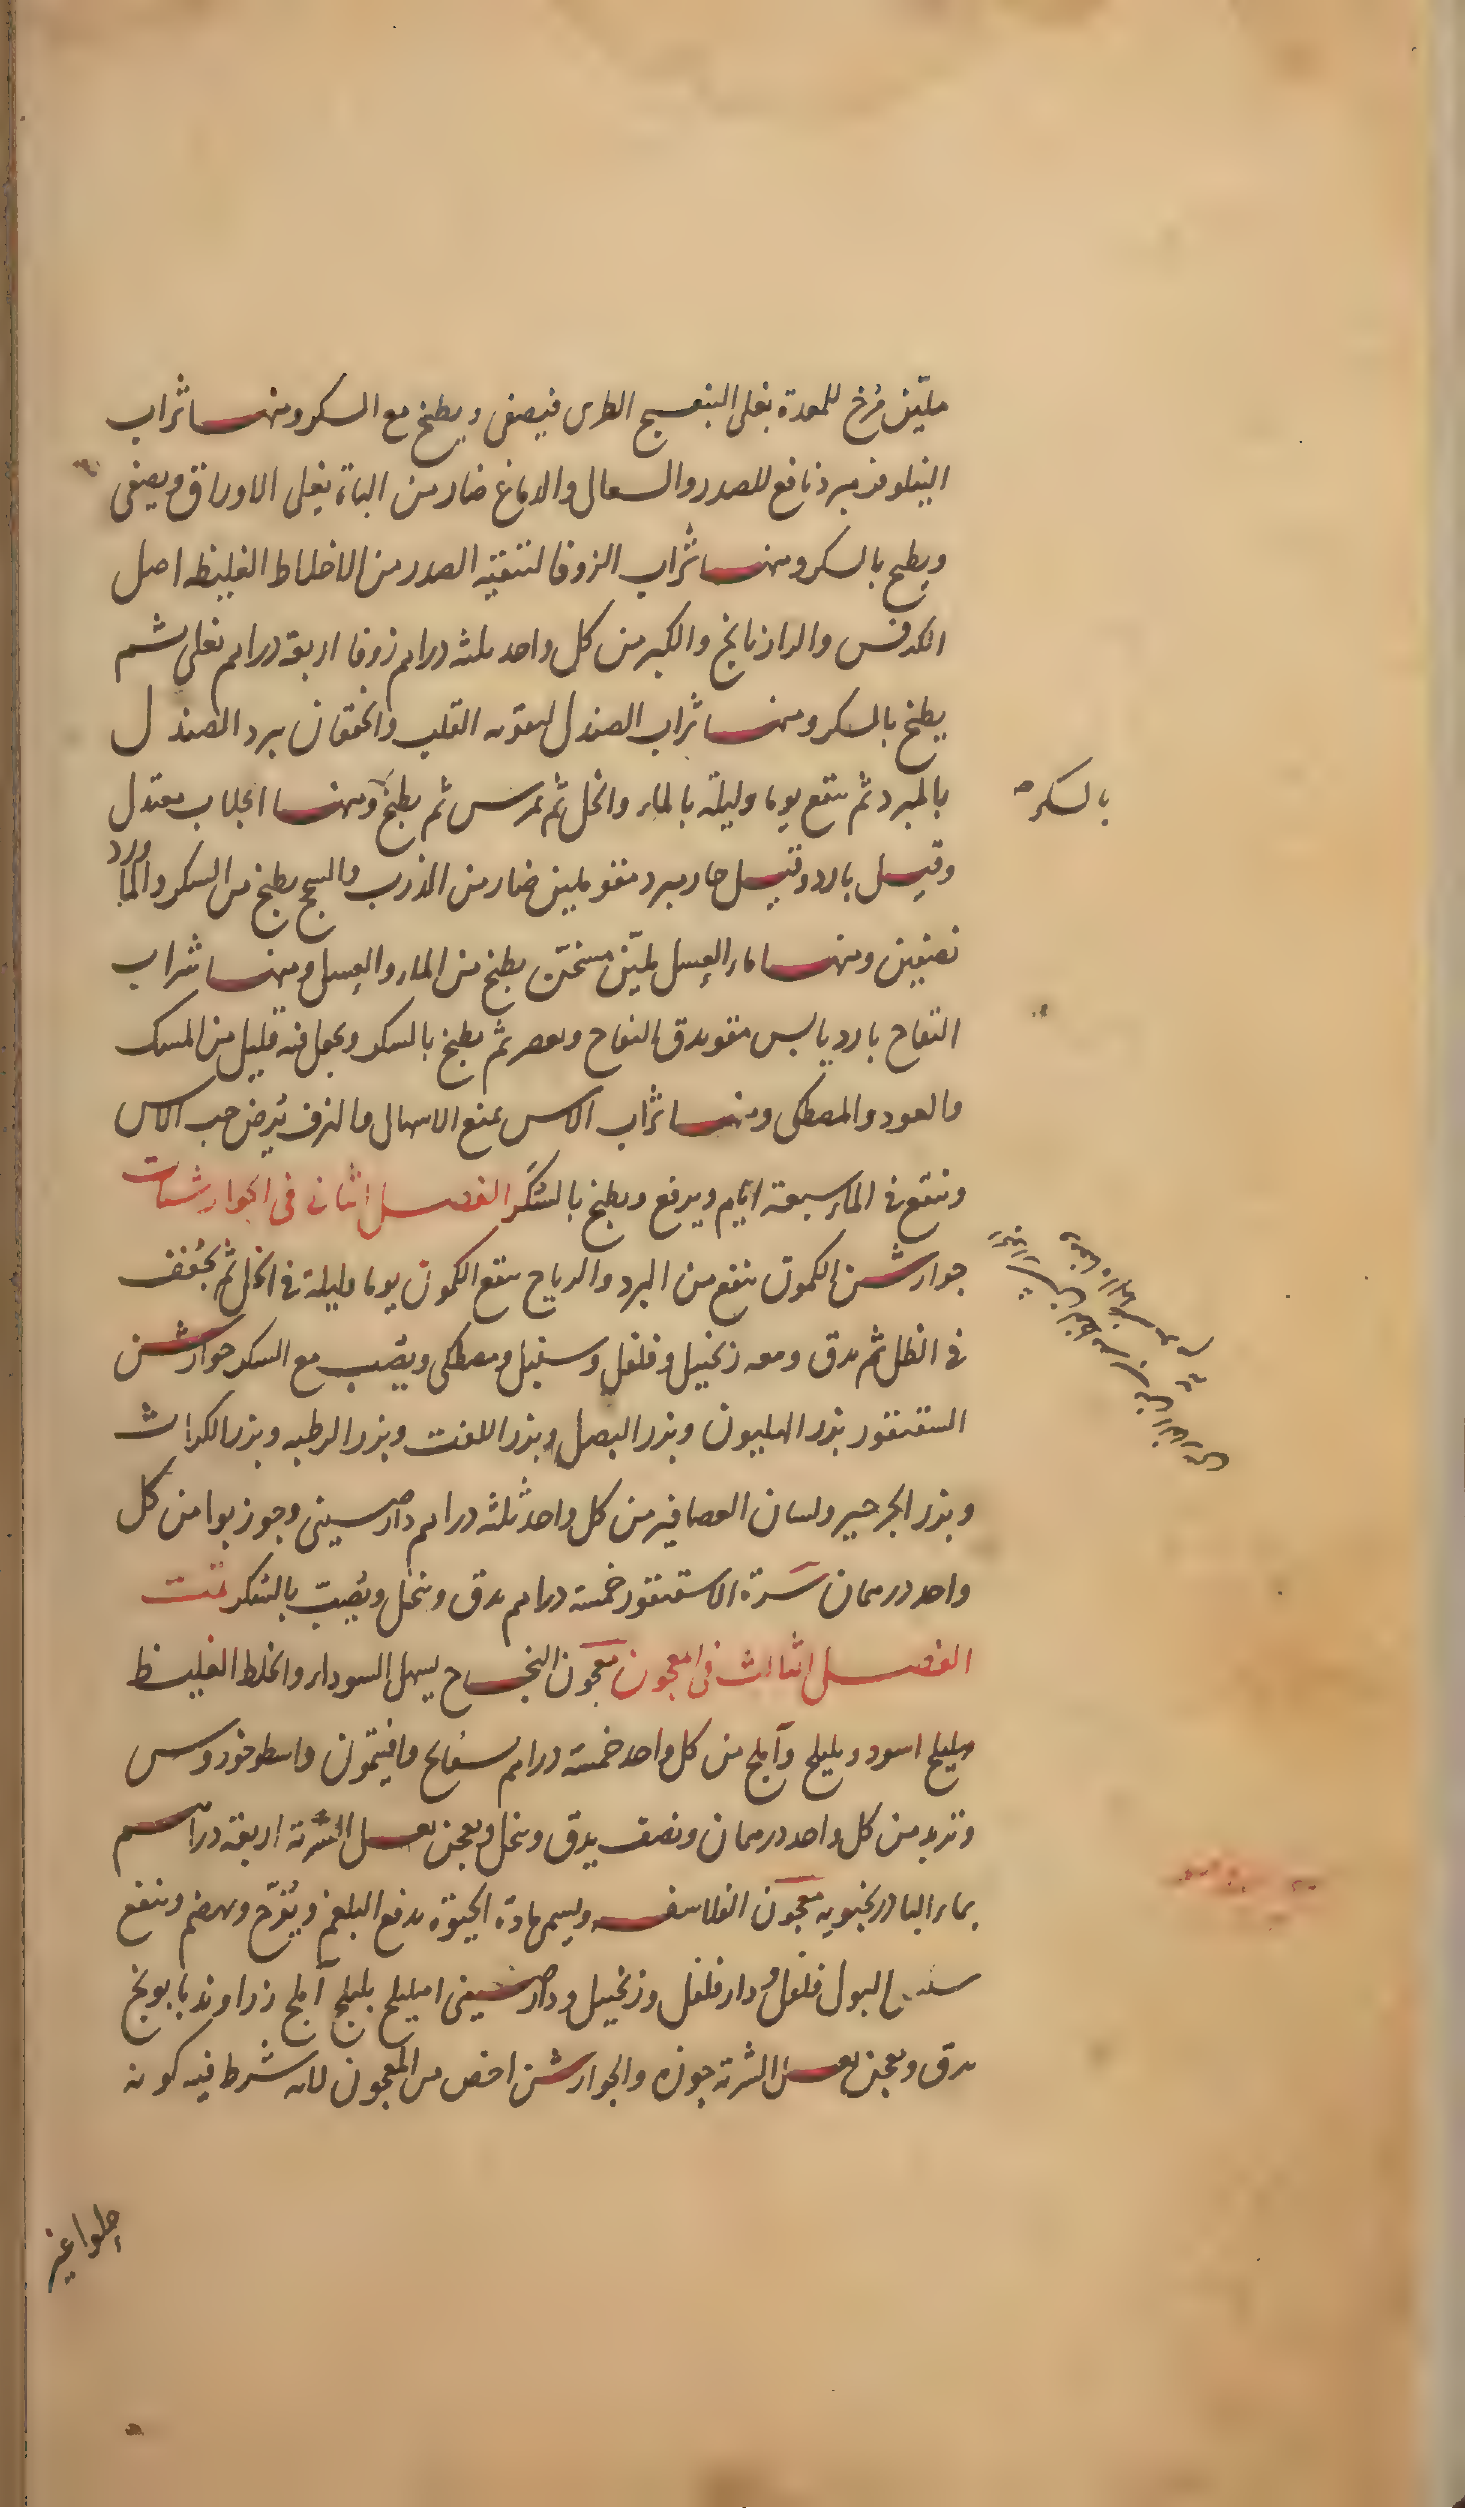 مليّن مُرخ للمعدة يغلى البنفسج الطرى فيصفى ويطبخ مع السكر ومنها شراب
النيلوفر مبرد نافع للصدر والسعال والدماغ ضار من الباة يغلى الاوراق ويصفى
ويطبخ بالسكر ومنها شراب الزوفا لتنقية الصدر من الاخلاط الغليظه اصل
الكرفس والرازيانج والكبر من كل واحد ثلثه دراهم زوفا اربعة دراهم تغلى ثم
يطبخ بالسكر ومنها شراب الصندل لتقويه القلب والخفقان يبرد الصندل
بالمبرد ثم ينقع يوما وليلة بالماء والخل ثم يمرس ثم يطبخ ومنها الجلاب معتدل
بالسكر صح
وقيل بارد وقيل حار مبرد مقو ملين ضار من الذرب والسحج يطبخ من السكر والماورد
نصفين ومنها ماء العسل مليّن مسخّن يطبخ من الماء والعسل ومنها شراب
التفاح بارد يابس مقو يدق التفاح ويعصر ثم يطبخ بالسكر ويجعل فيه قليل من المسك
والعود والمصطكى ومنها شراب الاس يمنع الاسهال والنزف يُرض حب الاس
وينقع فى الماء سبعة ايام ويرفع ويطبخ بالسُّكَر الفصل الثانى فى الجوارشات
جوارشن الكمون ينفع من البرد والرياح ينقع الكمون يوما وليلة فى الخل ثم يُجفف
فى الظل ثم يدق ومعه زنجبيل وفلفل وسنبل ومصطكى ويصُب مع السكر جوارشن
السقنقور بزر الهليون وبزر البصل وبزر اللفت وبزر الرطبه وبزر الكراث
وبزر الجرجير ولسان العصافير من كل واحد ثلثه دراهم دار صينى وجوز بوا من كل
واحد درهمان سرة الاسقنقور خمسة دراهم يدق وينخل ويُصبّ بالسُّكر تمت
الفصل الثالث فى المعجون معجون النجاح يسهل السوداء والخلط الغليظ
هليلج اسود وبليلج وآملج من كل واحد خمسة دراهم بسفايج وافيتمون واسطوخودوس
وتربد من كل واحد درهمان ونصف يدق وينخل ويعجن بعسل الشربة اربعة دراهم
بماء البادرنجبويه معجون الفلاسفه ويسمى مادة الحيوة يدفع البلغم ويُفرّح ويهضم وينفع
سلس البول فلفل ودار فلفل وزنجبيل ودار صينى اهليلج بليلج آملج زراوند بابونج
يدق ويعجن بعسل الشربة جوزه والجوارشن اخص من المعجون لانه شرط فيه كونه
حلوا غير